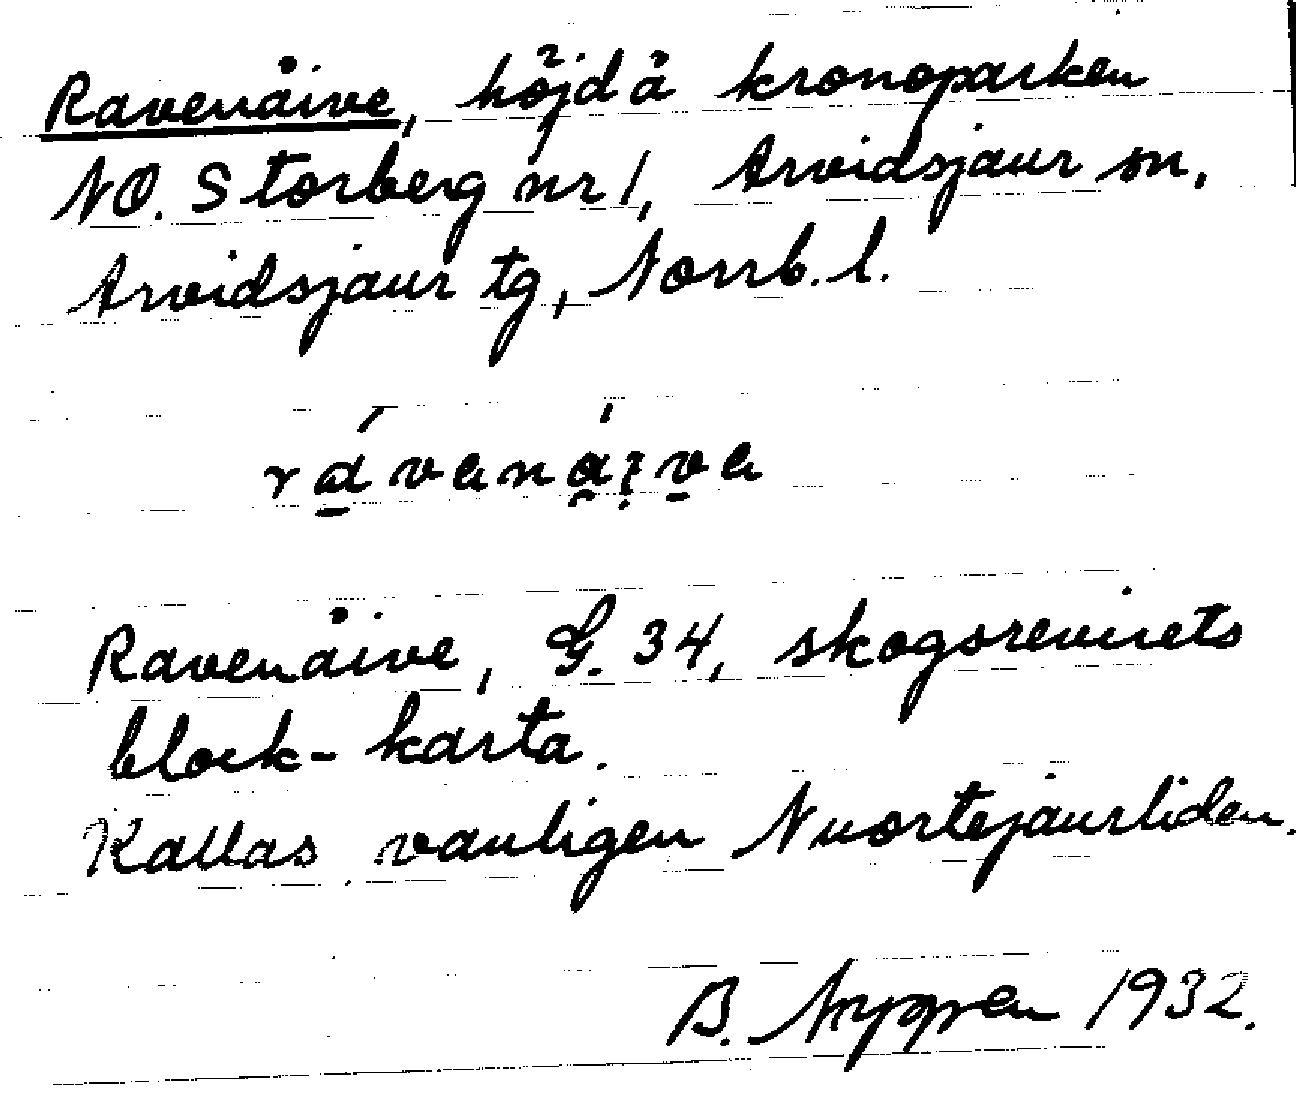 Ravenåive, höjd å kronoparken
NO. Storberg nr 1, Arvidsjaur sn,
Arvidsjaur tg, Norrb. l.
rávenái̯ve
Ravenåive, G. 34, skogsrevirets
block-karta.
Kallas vanligen Nuortejaurliden.
B. 1932.